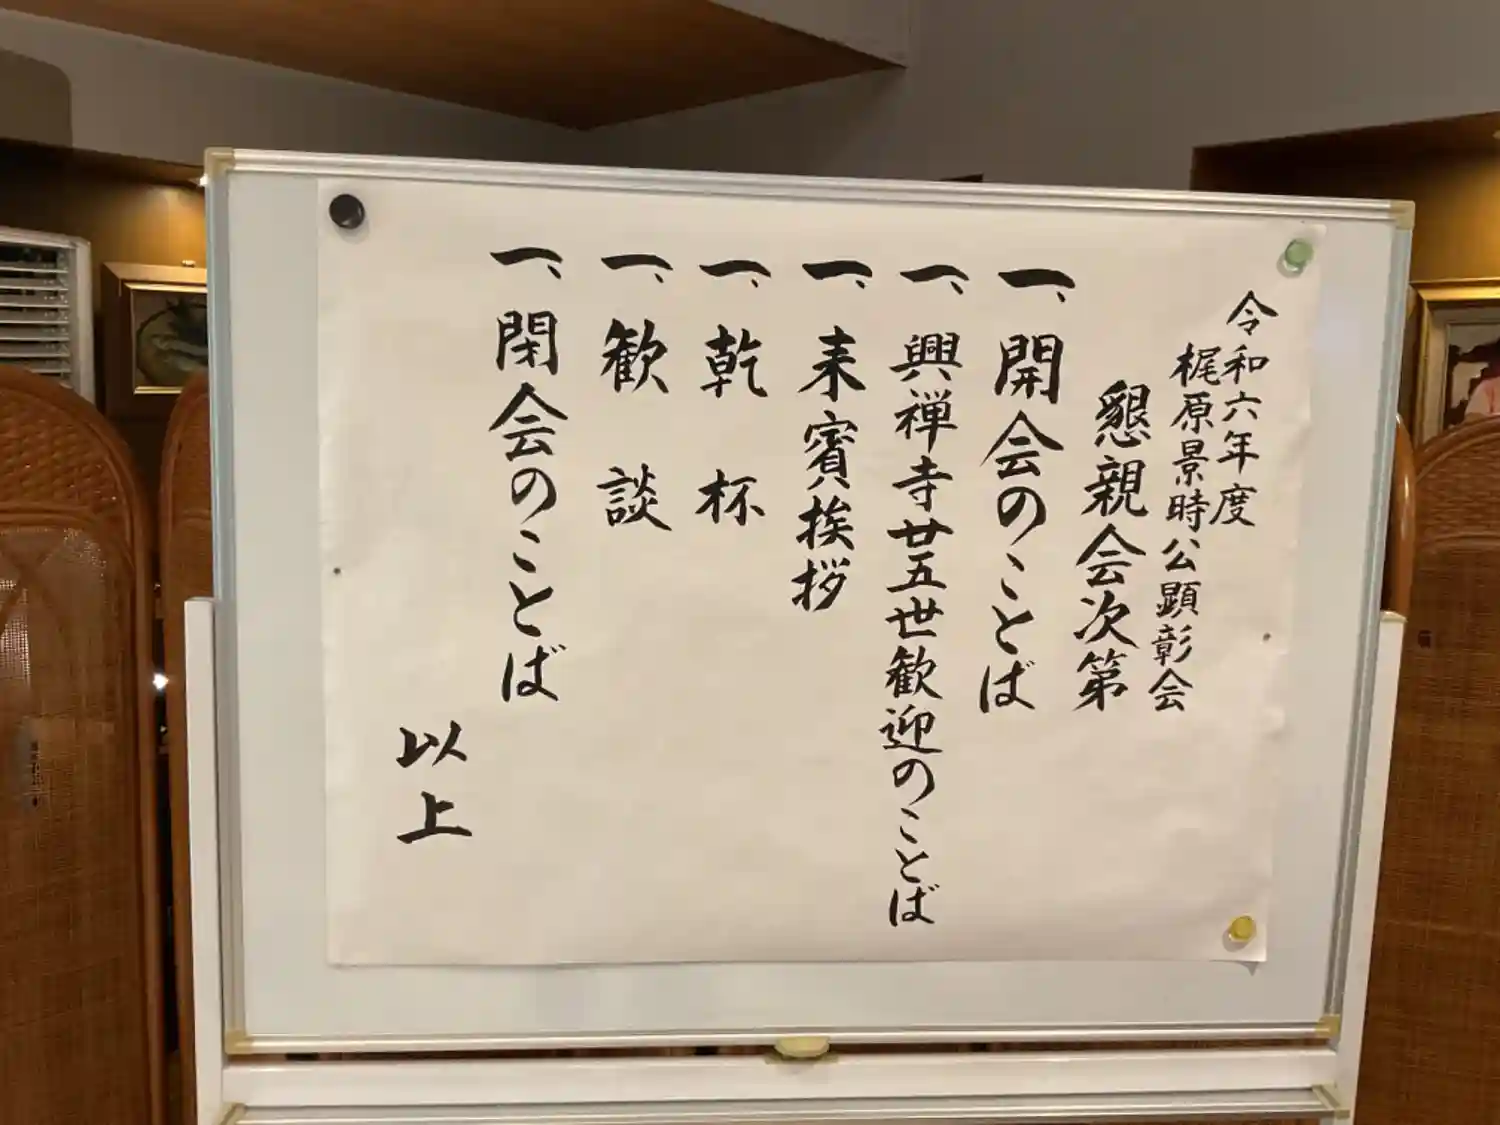 令和六年度
梶原景時公顕彰会
懇親会次第
一、開会のことば
一、興禅寺廿五世歓迎のことば
一、来賓挨拶
一、乾杯
一、歓談
一、閉会のことば
以上